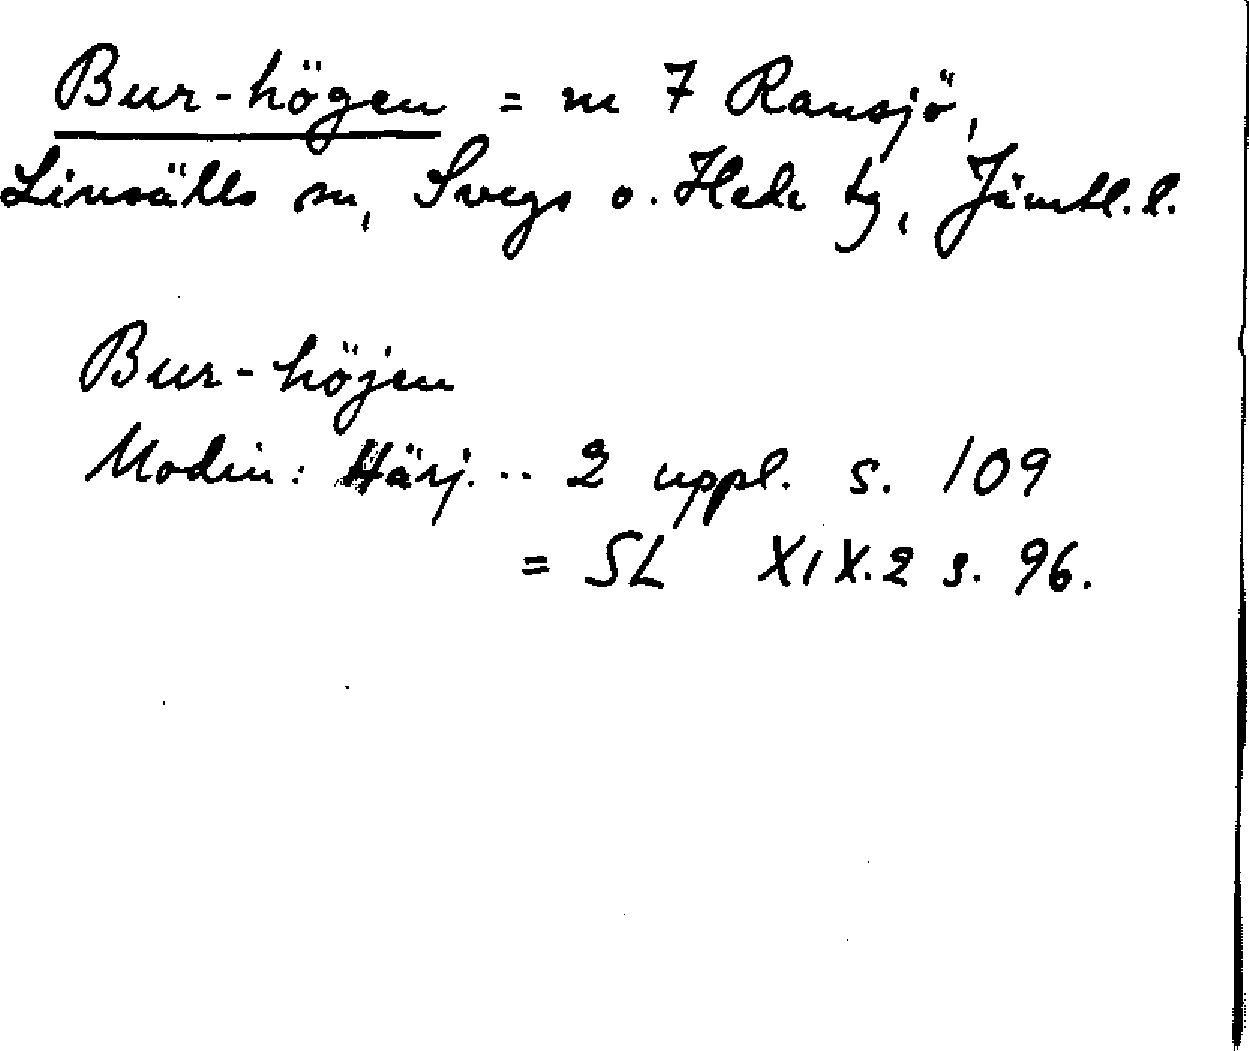 Bur-högen = m 7 Ransjö,
Linsälls sn, Svegs o. Hede tg, Jämtl. l.
Bur-höjen
Modin: Härj. .. 2 uppl. s. 109
= SL XIX.2 s. 96.